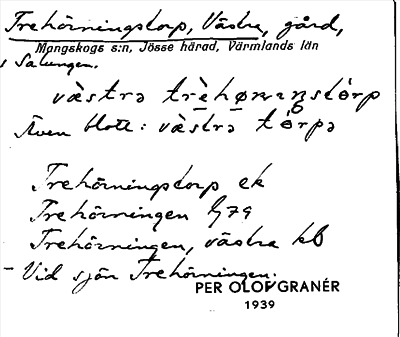 Trehörningstorp, Västra, gård,
Mangskogs s:n, Jösse härad, Värmlands län
i Salungen.
væstrə trèhøɳɩŋstórp
Även blott: væ̀strə tórpə
Trehörningstorp ek
Trehörningen G79
Trehörningen, västra kb
– Vid sjön Trehörningen.
PER OLOF GRANÉR
1939